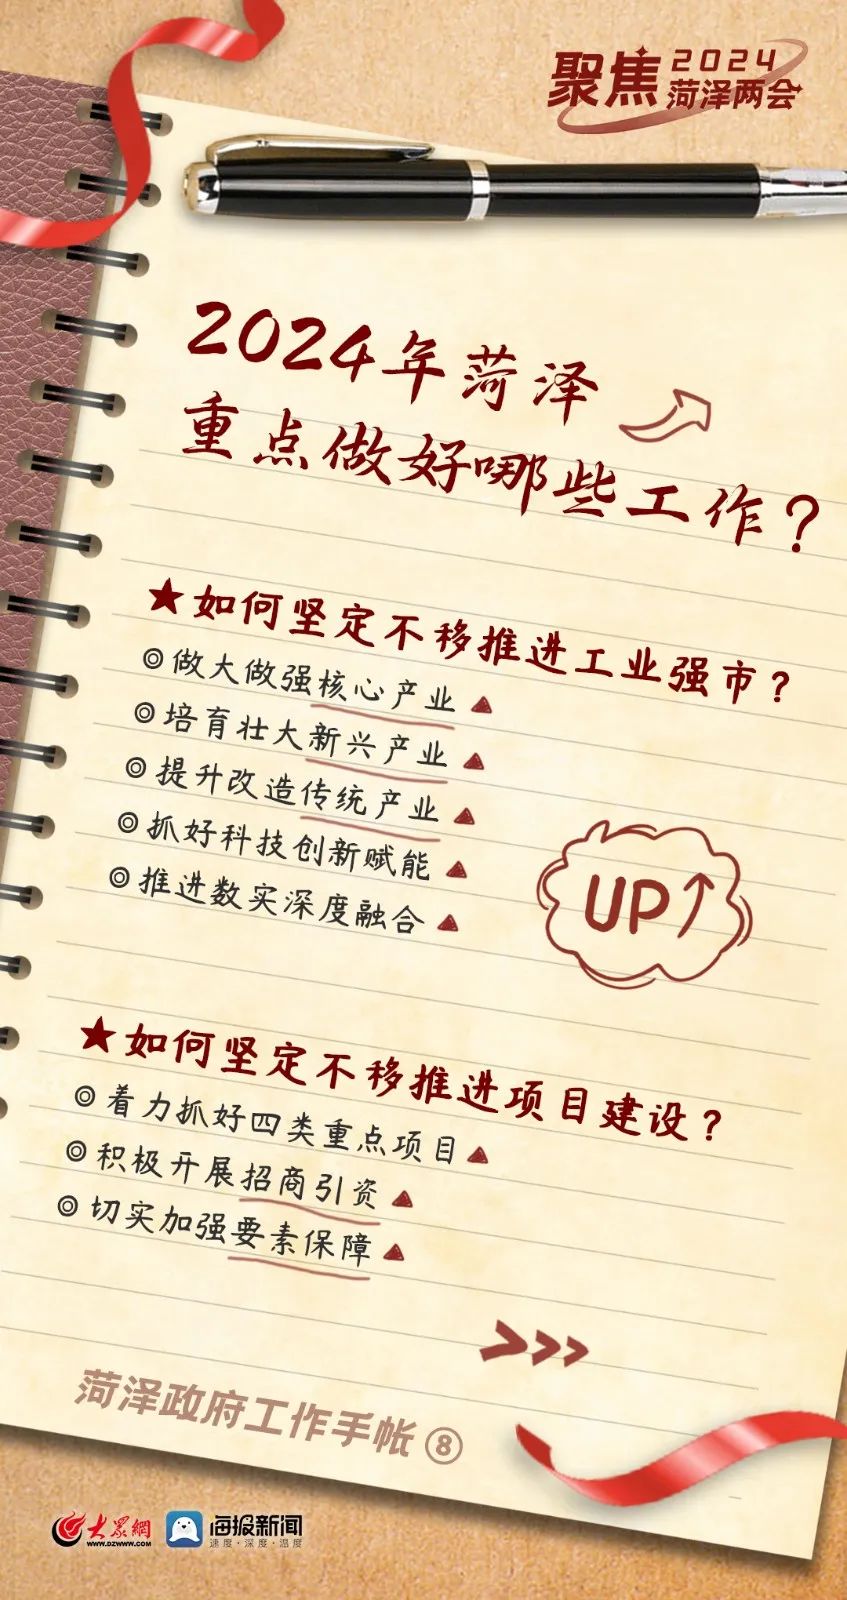 聚焦
2024
菏泽两会
2024年菏泽
重点做好哪些工作？
★如何坚定不移推进工业强市？
◎做大做强核心产业▲
◎培育壮大新兴产业▲
◎提升改造传统产业▲
◎抓好科技创新赋能▲
◎推进数实深度融合▲
UP↑
★如何坚定不移推进项目建设？
◎着力抓好四类重点项目▲
◎积极开展招商引资▲
◎切实加强要素保障▲
>>>
菏泽政府工作手帐⑧
大眾網
www.dzwww.com
海报新闻
速度·深度·温度